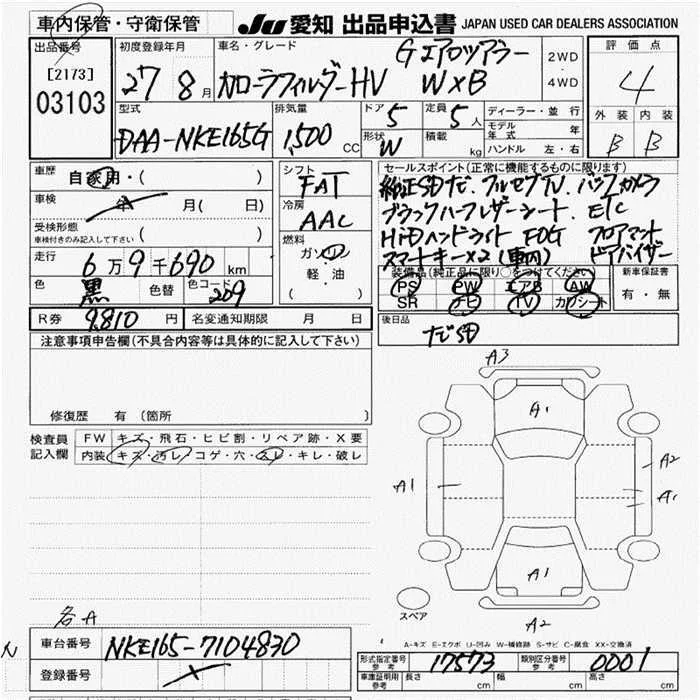 車内保管・守衛保管 JU 愛知 出品申込書 JAPAN USED CAR DEALERS ASSOCIATION
出品番号 [2173] 03103
初度登録年月 27 8月
車名・グレード Gエアロツアラー
カローラフィルダーHV W×B
2WD ・ 4WD
評価点 4
外装 内装
B B
型式 DAA-NKE165G
排気量 1,500 CC
ドア 5 定員 5人
形状 W 積載 kg
ディーラー・並行
モデル年式 年
ハンドル 左・右
車歴 自家用・( )
車検 年 月( 日)
受検形態 ( )
車検付きのみ記入して下さい
走行 6万9千690km
色 黒 色替 色コード 209
シフト FAT
冷房 AAC
燃料 ガソリン
軽・油
( )
セールスポイント(正常に機能するものに限ります)
純正SDナビ.フルセグTV.バックカメラ
ブラックハーフレザーシート.ETC
HiDヘッドライト FOG フロアマット
スマートキー×2(車内) ドアバイザー
装備品(純正品に限り○をつけてください) 新車保証書
PS PW エアB AW 有・無
SR ナビ TV カワシート
R券 9,810円 名変通知期限 月 日
後日品 ナビSD
注意事項申告欄(不具合内容等は具体的に記入して下さい)
修復歴 有(箇所 )
検査員記入欄 FW キズ・飛石・ヒビ割・リペア跡・X要
内装 キズ・汚レ・コゲ・穴・スレ・キレ・破レ
A3
A1
A1 A2
A1
A1
A2
スペア
A-キズ E-エクボ U-凹み W-補修跡 S-サビ C-腐食 XX-交換済
各A
N
車台番号 NKE165-7104830
登録番号
形式指定番号 参考 17573 類別区分番号 参考 0001
車庫証明用 参考 長さ cm 幅 cm 高さ cm